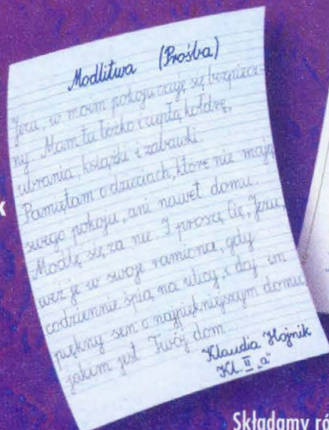 Modlitwa (Prośba)
Jezu, w moim pokoju czuję się bezpiecz-
ny. Mam tu łóżko i ciepłą kołdrę,
ubrania, książki i zabawki.
Pamiętam o dzieciach, które nie mają
swego pokoju, ani nawet domu.
Modlę się za nie. I proszę Cię, Jezu,
weź je w swoje ramiona, gdy
codziennie śpią na ulicy i daj im
piękny sen o najpiękniejszym domu,
jakim jest Twój dom.
Klaudia Hojnik
Kl. II "a"
k
Składamy ró